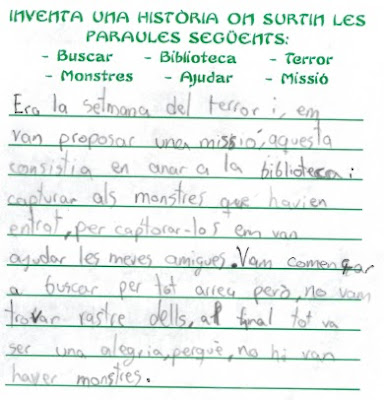 INVENTA UNA HISTÒRIA ON SURTIN LES
PARAULES SEGÜENTS:
- Buscar - Biblioteca - Terror
- Monstres - Ajudar - Missió
Era la setmana del terror i, em
van proposar una missió, aquesta
consistia en anar a la biblioteca i
capturar als monstres que havien
entrat, per captorar-los em van
ajudar les meves amigues. Vam començar
a buscar per tot arreu però, no vam
trovar rastre dells, al final tot va
ser una alegria, perquè, no hi van
haver monstres.